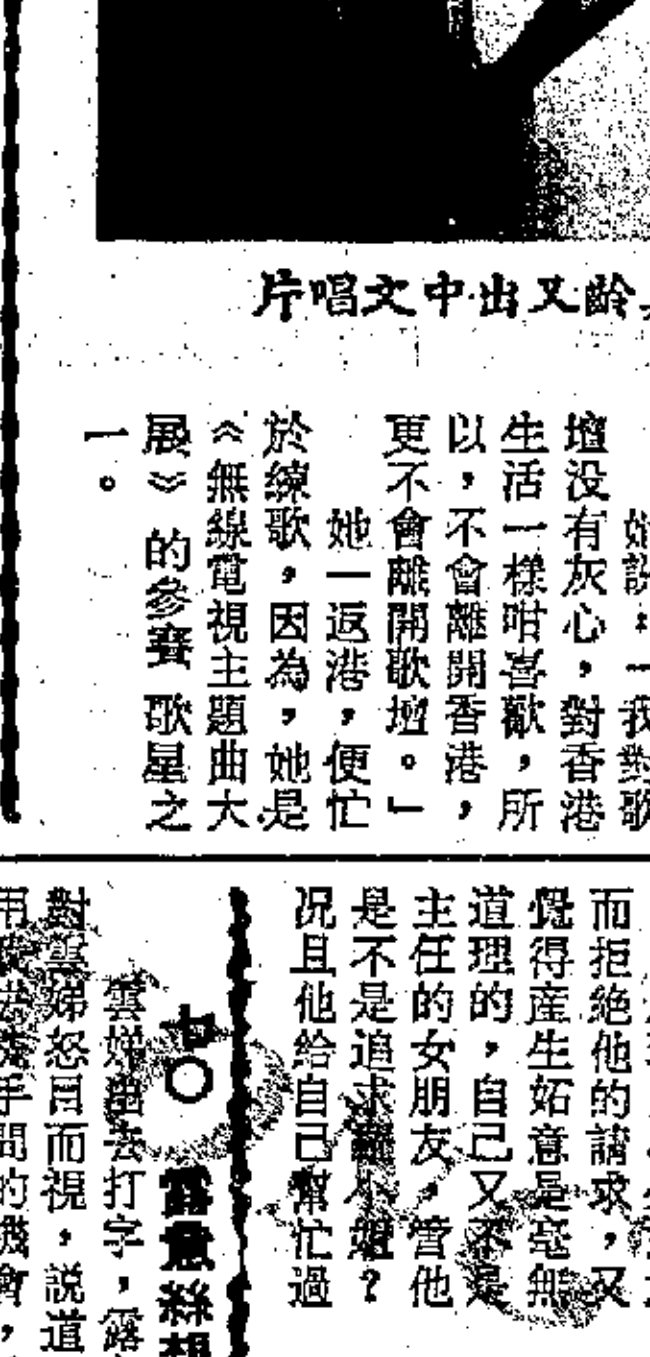 齡又出中文唱片
她說：「我對歌
壇没有灰心，對香港
生活一樣咁喜歡，所
以，不會離開香港，
更不會離開歌壇。」
她一返港，便忙
於練歌，因為，她是
《無線電視主題曲大
展》的參賽歌星之
一。
而拒絕他的請求，又
覺得産生妬意是毫無
道理的，自己又不是
主任的女朋友，管他
是不是追求小姐？
况且他給自己幫忙過
七〇 露意絲想
雲娣出去打字，露
對雲娣怒目而視，説道
用手間的機會，